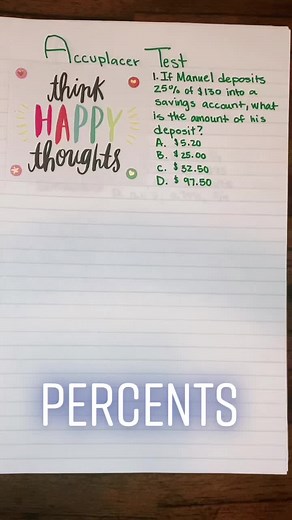 Accuplacer Test
think
HAPPY
thoughts
1. If Manuel deposits
25% of $130 into a
savings account, what
is the amount of his
deposit?
A. $5.20
B. $25.00
C. $32.50
D. $97.50
PERCENTS